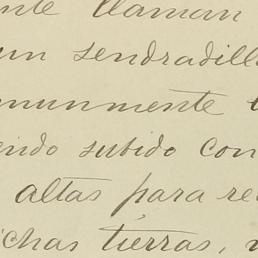 nte llaman
un sendradill
munmente
endo subido con
altas para re
chas tierras,